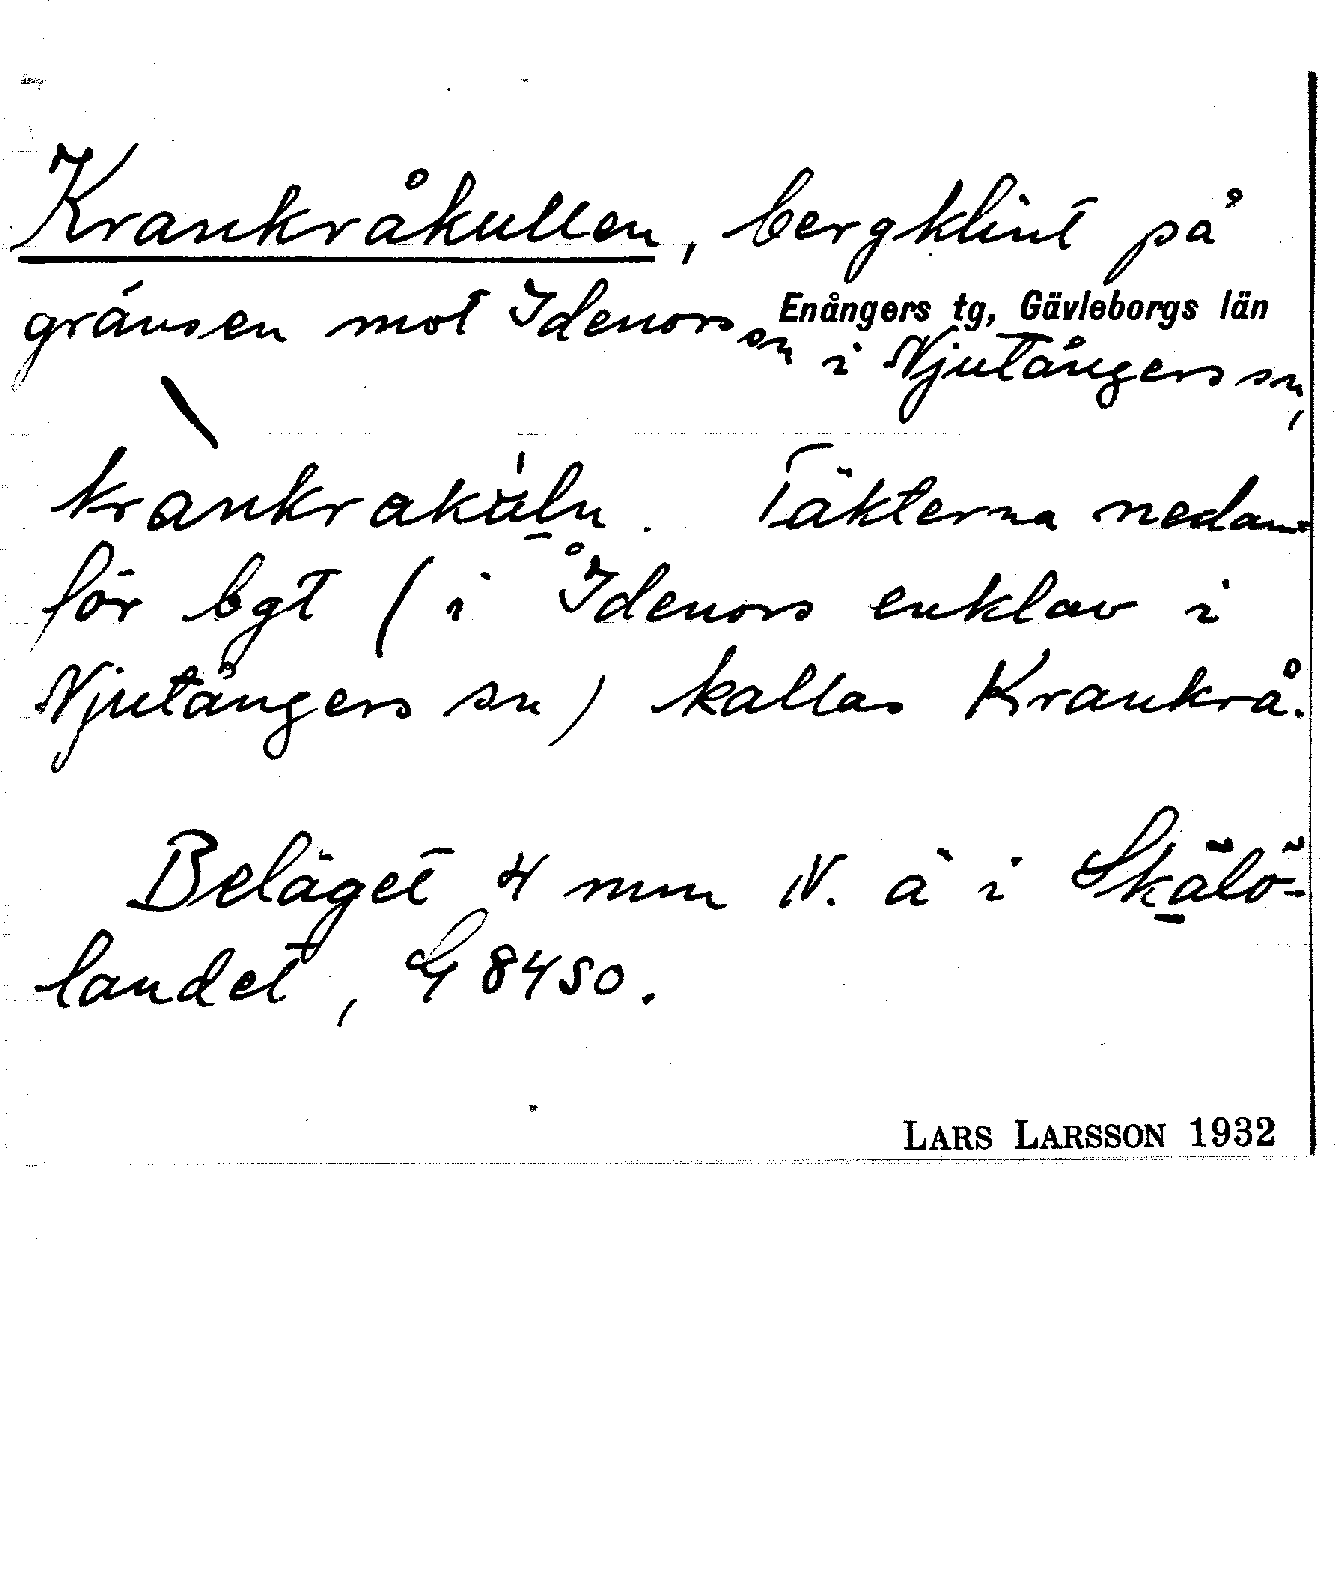 Krankråkullen, bergklint på
gränsen mot Idenors sn i Njutångers sn,
Enångers tg, Gävleborgs län
krankrakuln. Täkterna nedan-
för bgt (i Idenors enklav i
Njutångers sn) kallas Krankrå.
Beläget 4 mm N. ä i Skälö-
landet, G 8450.
LARS LARSSON 1932